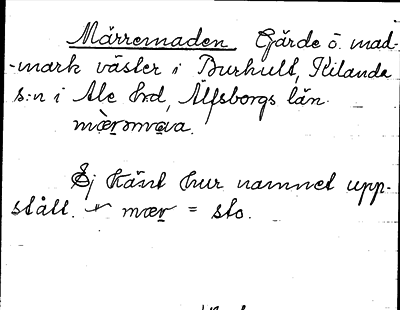 Märremaden. Gärde ö. mad-
-mark väster i Burhult, Kilanda
s:n i Ale hd, Älfsborgs län.
mær̀əmava.
Ej känt hur namnet upp-
stått. mær = sto.